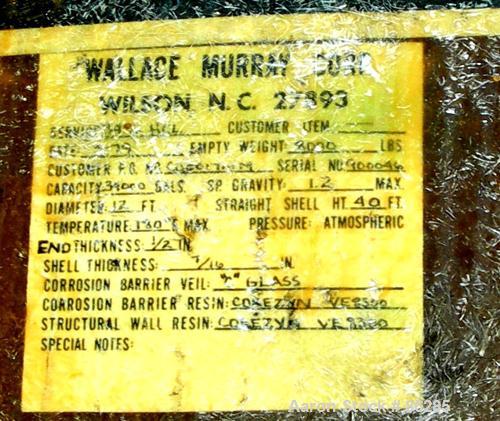 WALLACE MURRAY CORP
WILSON N.C. 27893
SERVICE: HCL CUSTOMER ITEM
DATE: 2-79 EMPTY WEIGHT: LBS
CUSTOMER P.O. NO. SERIAL NO.
CAPACITY: 39000 GALS. SP. GRAVITY: 1.2 MAX.
DIAMETER: 12 FT. STRAIGHT SHELL HT. 40 FT.
TEMPERATURE: °F MAX. PRESSURE: ATMOSPHERIC
END THICKNESS: 1/2 IN.
SHELL THICKNESS: /16 IN.
CORROSION BARRIER VEIL: "C" GLASS
CORROSION BARRIER RESIN: COREZYN VE8300
STRUCTURAL WALL RESIN: COREZYN VE8300
SPECIAL NOTES:
Aaron Stock #